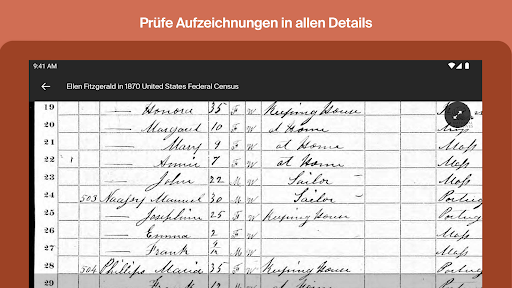 Prüfe Aufzeichnungen in allen Details
9:41 AM
Ellen Fitzgerald in 1870 United States Federal Census
19 — Honora 35 F W Keeping House
20 — Margaret 10 F W at Home Mass
21 — Mary 9 F W at Home Mass
22 1 — Annie 7 F W at Home Mass
23 — John 22 M W Sailor Mass
24 503 Manuel 30 M W Sailor
25 — Josephine 25 F W Keeping House
26 — Emma 2 F W Mass
27 — Frank M W Mass
28 504 Phillips Maria 35 F W Keeping House
Frank 12 M W